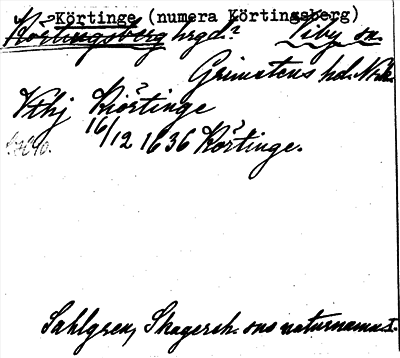 Körtinge (numera Körtingsberg)
Körtingsberg hrgd? Viby sn.
Grimstens hd. Nrk.
Kkhj Kiörtinge
16/12 1636 Körtinge.
Sahlgren, Skagersh. sns naturnamn I.